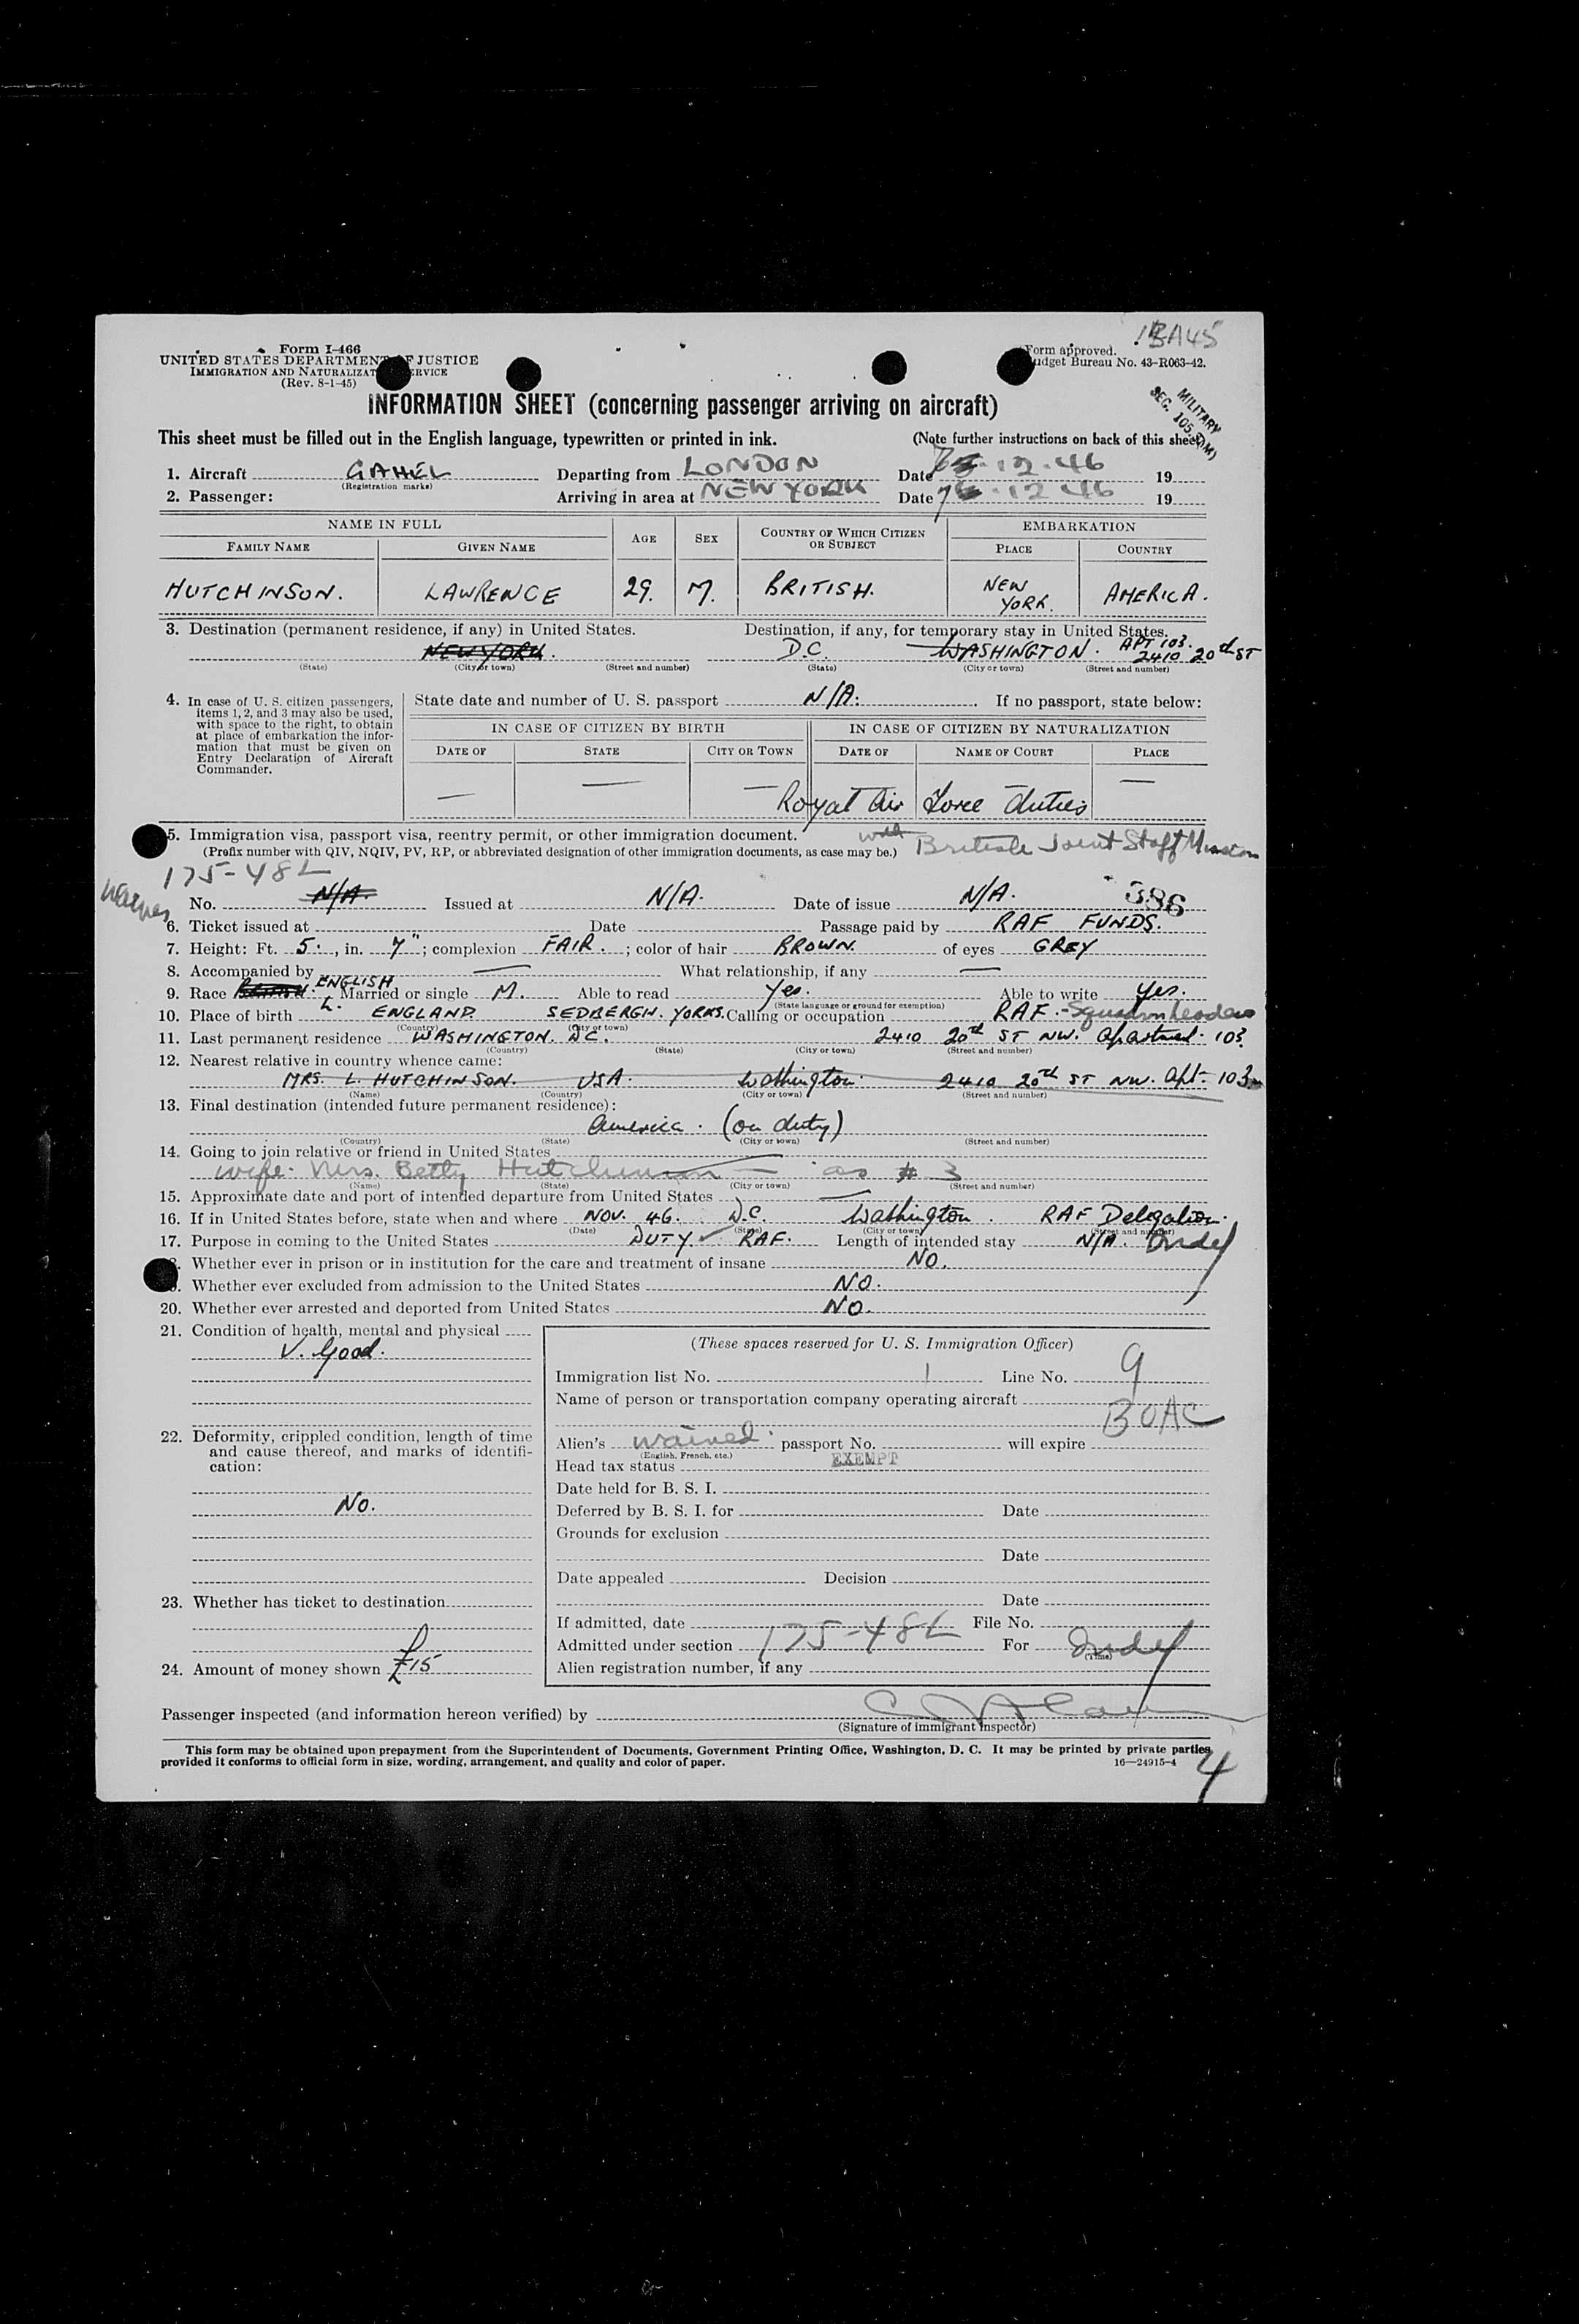 Form I-466
UNITED STATES DEPARTMENT OF JUSTICE
IMMIGRATION AND NATURALIZATION SERVICE
(Rev. 8-1-45)
BA45
Form approved.
Budget Bureau No. 43-R063-42.
MILITARY
SEC. 105.3(M)
INFORMATION SHEET (concerning passenger arriving on aircraft)
This sheet must be filled out in the English language, typewritten or printed in ink. (Note further instructions on back of this sheet)
1. Aircraft GAHEL Departing from LONDON Date 12.46 19
(Registration marks)
2. Passenger: Arriving in area at NEW YORK Date 12 46 19
NAME IN FULL AGE SEX COUNTRY OF WHICH CITIZEN OR SUBJECT EMBARKATION
FAMILY NAME GIVEN NAME PLACE COUNTRY
HUTCHINSON. LAWRENCE 29. M. BRITISH. NEW YORK. AMERICA.
3. Destination (permanent residence, if any) in United States. Destination, if any, for temporary stay in United States.
NEW YORK. D.C. WASHINGTON. APT 103. 2410 20th ST
(State) (City or town) (Street and number) (State) (City or town) (Street and number)
4. In case of U. S. citizen passengers, items 1, 2, and 3 may also be used, with space to the right, to obtain at place of embarkation the information that must be given on Entry Declaration of Aircraft Commander.
State date and number of U. S. passport N/A. If no passport, state below:
IN CASE OF CITIZEN BY BIRTH IN CASE OF CITIZEN BY NATURALIZATION
DATE OF STATE CITY OR TOWN DATE OF NAME OF COURT PLACE
— — — —
Royal Air Force duties
5. Immigration visa, passport visa, reentry permit, or other immigration document. with British Joint Staff Mission
(Prefix number with QIV, NQIV, PV, RP, or abbreviated designation of other immigration documents, as case may be.)
175-48L
No. N/A. Issued at N/A. Date of issue N/A. 386
6. Ticket issued at Date Passage paid by RAF FUNDS.
7. Height: Ft. 5., in. 7"; complexion FAIR.; color of hair BROWN. of eyes GREY
8. Accompanied by — What relationship, if any —
9. Race ENGLISH Married or single M. Able to read Yes. Able to write Yes.
(State language or ground for exemption)
10. Place of birth ENGLAND SEDBERGH. YORKS. Calling or occupation RAF.-Squadron Leader
(Country) (City or town)
11. Last permanent residence WASHINGTON. D.C. 2410 20th ST NW. Apartment 103.
(Country) (State) (City or town) (Street and number)
12. Nearest relative in country whence came:
MRS. L. HUTCHINSON. USA. Washington. 2410 20th ST NW. Apt. 103
(Name) (Country) (City or town) (Street and number)
13. Final destination (intended future permanent residence):
America. (on duty)
(Country) (State) (City or town) (Street and number)
14. Going to join relative or friend in United States
wife. Mrs. Betty Hutchinson — as # 3
(Name) (State) (City or town) (Street and number)
15. Approximate date and port of intended departure from United States —
16. If in United States before, state when and where NOV. 46. D.C. Washington. RAF Delegation.
(Date) (State) (City or town) (Street and number)
17. Purpose in coming to the United States DUTY RAF. Length of intended stay N/A Indef
18. Whether ever in prison or in institution for the care and treatment of insane NO.
19. Whether ever excluded from admission to the United States NO.
20. Whether ever arrested and deported from United States NO.
21. Condition of health, mental and physical
V. Good.
22. Deformity, crippled condition, length of time and cause thereof, and marks of identification:
No.
23. Whether has ticket to destination
24. Amount of money shown £15
(These spaces reserved for U. S. Immigration Officer)
Immigration list No. 1 Line No. 9
Name of person or transportation company operating aircraft
BOAC
Alien's waived. passport No. will expire
(English, French, etc.)
Head tax status EXEMPT
Date held for B. S. I.
Deferred by B. S. I. for Date
Grounds for exclusion
Date
Date appealed Decision
Date
If admitted, date File No.
Admitted under section 175-48L For Indef
(Time)
Alien registration number, if any
Passenger inspected (and information hereon verified) by
(Signature of immigrant inspector)
This form may be obtained upon prepayment from the Superintendent of Documents, Government Printing Office, Washington, D. C. It may be printed by private parties
provided it conforms to official form in size, wording, arrangement, and quality and color of paper. 16—24915-4
4